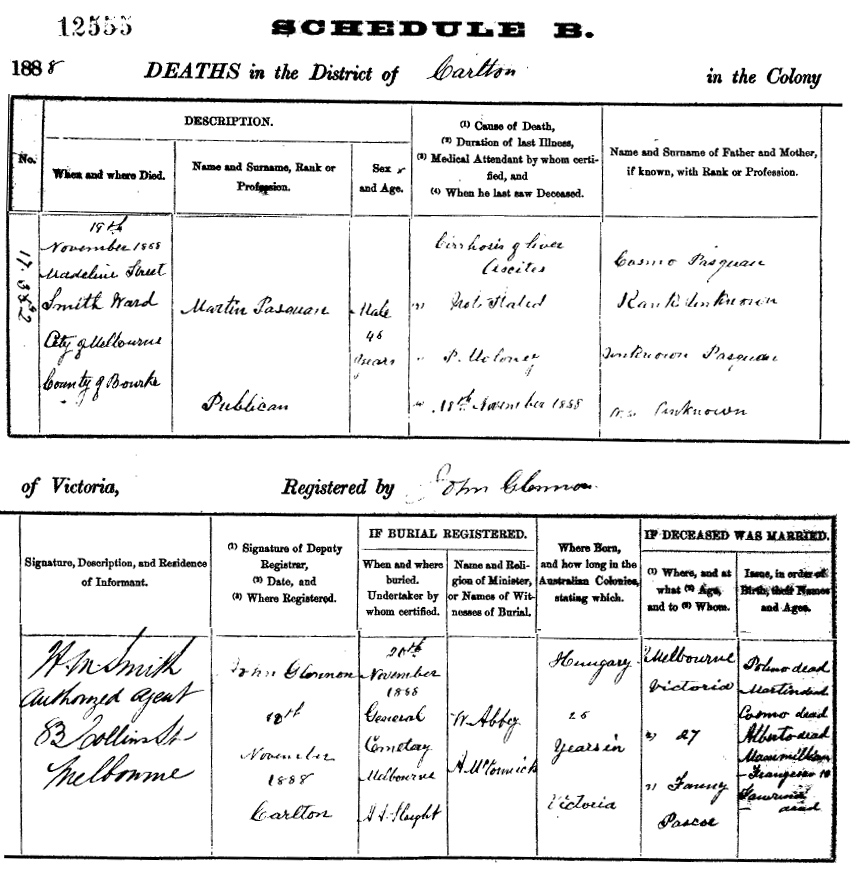 12555
SCHEDULE B.
1888 DEATHS in the District of Carlton in the Colony
No.
DESCRIPTION.
When and where Died.
Name and Surname, Rank or
Profession.
Sex
and Age.
(1) Cause of Death,
(2) Duration of last Illness,
(3) Medical Attendant by whom certi-
fied, and
(4) When he last saw Deceased.
Name and Surname of Father and Mother,
if known, with Rank or Profession.
17.382
19th
November 1888
Madeline Street
Smith Ward
City of Melbourne
County of Bourke
Martin Pasquan
Publican
Male
46
Years
Cirrhosis of liver
Ascites
Not Stated
P. Moloney
18th November 1888
Cosmo Pasquan
Rank Unknown
Unknown Pasquan
Unknown
of Victoria, Registered by John Glennon
Signature, Description, and Residence
of Informant.
(1) Signature of Deputy
Registrar,
(2) Date, and
(3) Where Registered.
IF BURIAL REGISTERED.
When and where
buried.
Undertaker by
whom certified.
Name and Reli-
gion of Minister,
or Names of Wit-
nesses of Burial.
Where Born,
and how long in the
Australian Colonies,
stating which.
IF DECEASED WAS MARRIED.
(1) Where, and at
what (2) Age,
and to (3) Whom.
Issue, in order of
Birth, their Names
and Ages.
H. M. Smith
Authorized Agent
83 Collins St
Melbourne
John Glennon
November
1888
Carlton
20th
November
1888
General
Cemetery
Melbourne
W. Abbey
A McCormick
Hungary
Years in
Victoria
Melbourne
Victoria
27
Fanny
Pascoe
dead
Martin dead
Cosmo dead
Alberto dead
dead